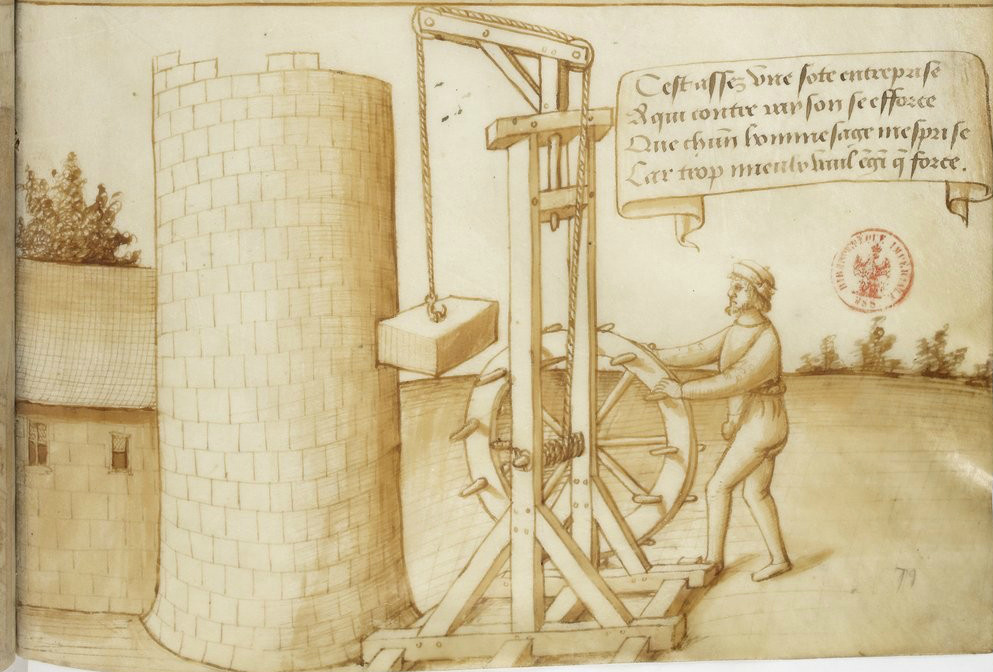 Cest assez vne sote entreprise
A qui contre rayson se efforce
Que chũn homme sage mesprise
Car trop mieulx vault egĩ q̃ force.
BIBLIOTHEQUE IMPERIALE MSS
79